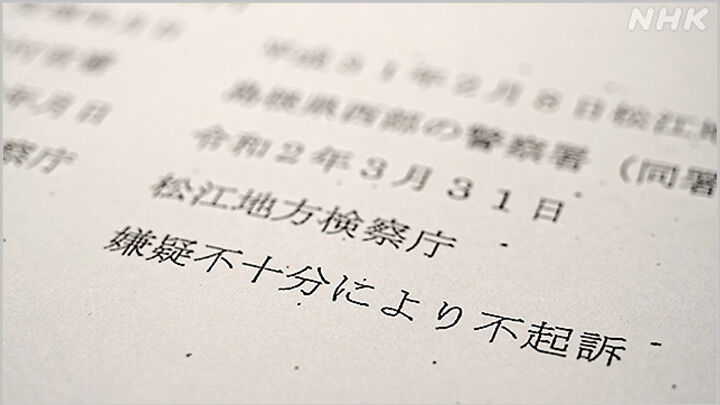 NHK
平成31年2月8日松江地
島根県西部の警察署（同署
年月日
令和2年3月31日
察庁
松江地方検察庁
嫌疑不十分により不起訴